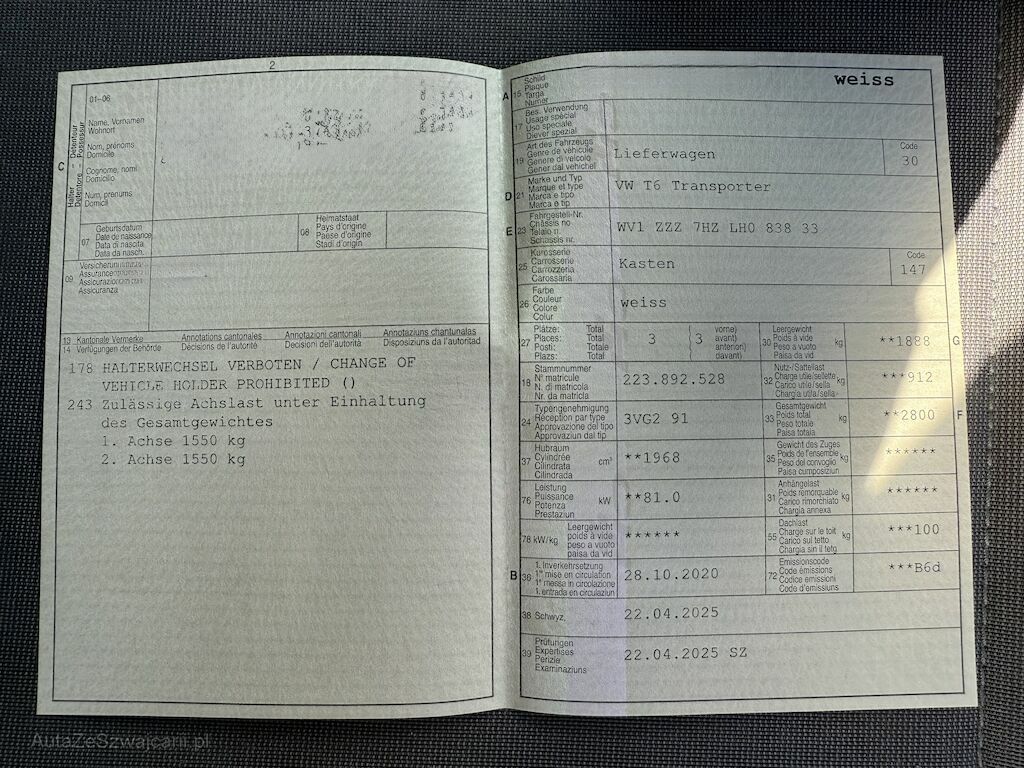 2
01–06
Name, Vornamen
Wohnort
Nom, prénoms
Domicile
Cognome, nomi
Domicilio
Num, prenums
Domicil
C
Halter – Détenteur
Detentore – Possessur
07
Geburtsdatum
Date de naissance
Data di nascita
Data da nasch.
08
Heimatstaat
Pays d'origine
Paese d'origine
Stadi d'origin
09
Versicherung
Assurance
Assicurazione
Assicuranza
13 Kantonale Vermerke
14 Verfügungen der Behörde
Annotations cantonales
Décisions de l'autorité
Annotazioni cantonali
Decisioni dell'autorità
Annotaziuns chantunalas
Disposiziuns da l'autoritad
178 HALTERWECHSEL VERBOTEN / CHANGE OF
VEHICLE HOLDER PROHIBITED ()
243 Zulässige Achslast unter Einhaltung
des Gesamtgewichtes
1. Achse 1550 kg
2. Achse 1550 kg
A 15
Schild
Plaque
Targa
Numer
weiss
17
Bes. Verwendung
Usage spécial
Uso speciale
Diever spezial
19
Art des Fahrzeugs
Genre de véhicule
Genere di veicolo
Gener dal vehichel
Lieferwagen
Code
30
D 21
Marke und Typ
Marque et type
Marca e tipo
Marca e tip
VW T6 Transporter
E 23
Fahrgestell-Nr.
Châssis no
Telaio n.
Schassis nr.
WV1 ZZZ 7HZ LH0 838 33
25
Karosserie
Carrosserie
Carrozzeria
Carossaria
Kasten
Code
147
26
Farbe
Couleur
Colore
Colur
weiss
27
Plätze: Total
Places: Total
Posti: Totale
Plazs: Total
3
(3
vorne)
avant)
anteriori)
davant)
30
Leergewicht
Poids à vide
Peso a vuoto
Paisa da vid
kg
**1888
G
18
Stammnummer
N° matricule
N. di matricola
Nr. da matricla
223.892.528
32
Nutz-/Sattellast
Charge utile/sellette
Carico utile/sella
Chargia utila/sella
kg
***912
24
Typengenehmigung
Réception par type
Approvazione del tipo
Approvaziun dal tip
3VG2 91
33
Gesamtgewicht
Poids total
Peso totale
Paisa totala
kg
**2800
F
37
Hubraum
Cylindrée
Cilindrata
Cilindrada
cm³
**1968
35
Gewicht des Zuges
Poids de l'ensemble
Peso del convoglio
Paisa cumposiziun
kg
******
76
Leistung
Puissance
Potenza
Prestaziun
kW
**81.0
31
Anhängelast
Poids remorquable
Carico rimorchiato
Chargia annexa
kg
******
78 kW/kg
Leergewicht
poids à vide
peso a vuoto
paisa da vid
******
55
Dachlast
Charge sur le toit
Carico sul tetto
Chargia sin il tetg
kg
***100
B 36
1. Inverkehrsetzung
1re mise en circulation
1a messa in circolazione
1. entrada en circulaziun
28.10.2020
72
Emissionscode
Code émissions
Codice emissioni
Code d'emissiuns
***B6d
38 Schwyz,
22.04.2025
39
Prüfungen
Expertises
Perizie
Examinaziuns
22.04.2025 SZ
AutaZeSzwajcarii.pl